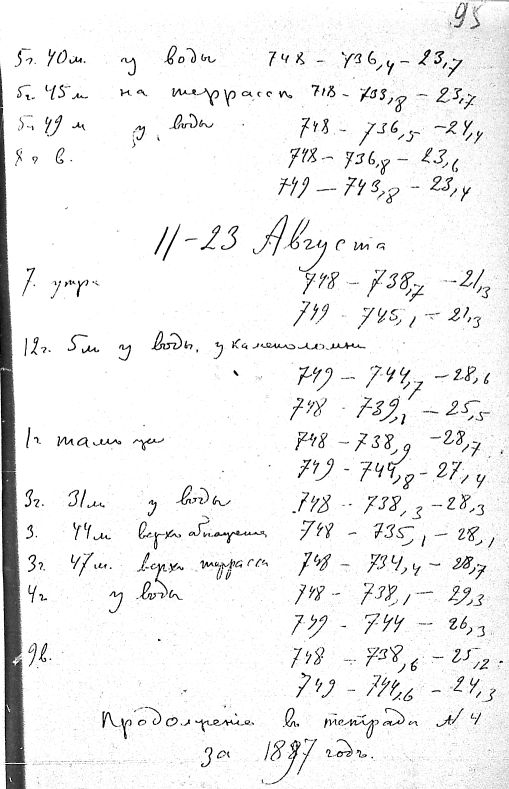 95
5г. 40м. у воды 748 - 736,4 - 23,7
5г. 45м на террасѣ 748 - 733,8 - 23,7
5г 49 м у воды 748 - 736,5 - 24,4
8 г в. 748 - 736,8 - 23,6
749 - 743,8 - 23,4
11-23 Августа
7. утра 748 - 738,7 - 21,3
749 - 745,1 - 21,3
12г. 5м у воды, у каменоломни
749 - 744,7 - 28,6
748 - 739,1 - 25,5
1г тамъ 748 - 738,9 - 28,7
749 - 744,8 - 27,4
3г. 31м у воды 748 - 738,3 - 28,3
3. 44м верхъ 748 - 735,1 - 28,1
3г 47м. верхъ терраса 748 - 734,4 - 28,7
4г у воды 748 - 738,1 - 29,3
749 - 744 - 26,3
9в. 748 - 738,6 - 25,2
749 - 744,6 - 24,3
Продолженіе въ тетради № 4
за 1887 годъ.